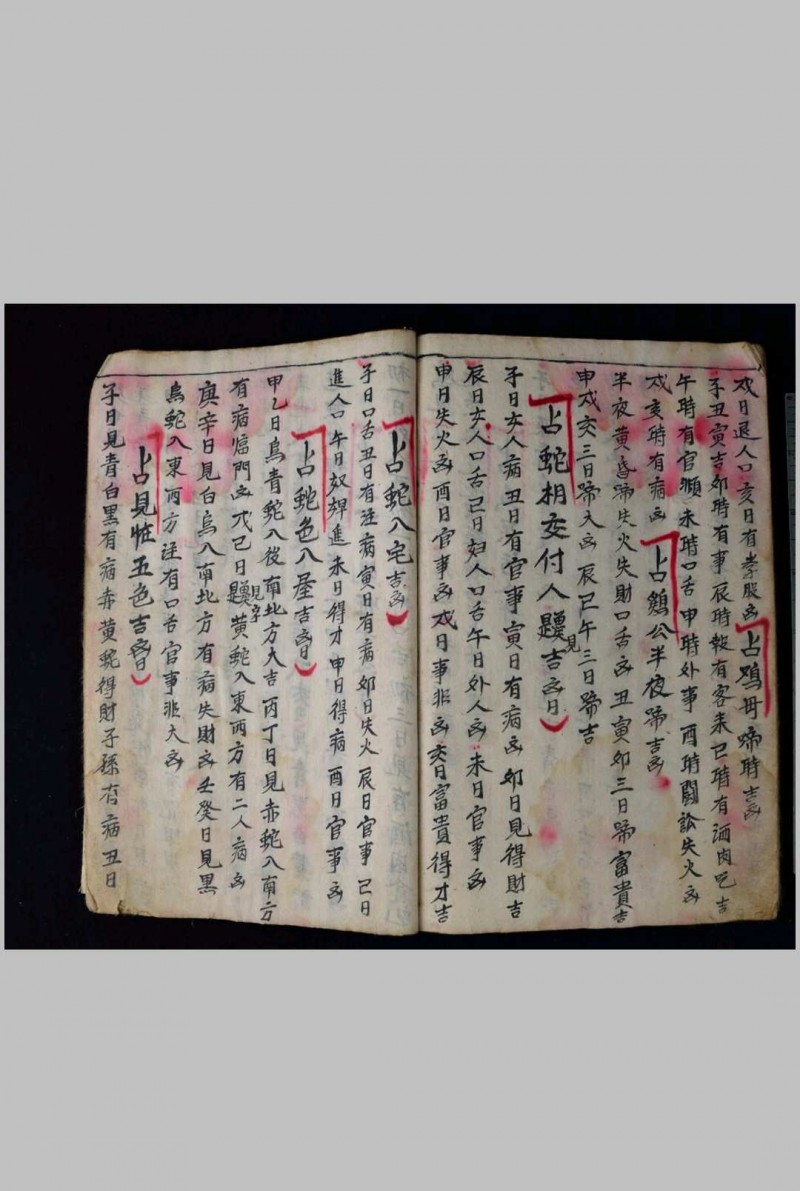 戌日退人口亥日有孝服凶占鸡母啼時吉凶
子丑寅吉卯時有事辰時報有客来巳時有酒肉吃吉
午時有官瀕未時口舌申時外事酉時闘訟失火凶
戌亥時有病凶占鷄公半夜啼吉凶
半夜黄昏啼失火失財口舌凶丑寅卯三日啼富貴吉
申戌亥三日啼大凶辰巳午三日啼吉
占蛇相交付人見吉凶日
子日女人病丑日有官事寅日有病凶卯日見得財吉
辰日女人口舌己日妇人口舌午日外人凶未日官事凶
申日失火凶酉日官事凶戌日事非凶亥日富貴得才吉
占蛇入宅吉凶
子日口舌丑日有注病寅日有病卯日失火辰日官事己日
進人口午日奴婢進未日得才申日得病酉日官事凶
占蛇色入屋吉凶日
甲乙日烏青蛇入後南北方大吉丙丁日見赤蛇入南方
有病臨門凶戊己日見黄蛇入東西方有二人病凶
庚辛日見白烏入南北方有病失財凶壬癸日見黑
烏蛇入東西方注有口舌官事非大凶
占見蛇五色吉凶日
子日見青白黑有病赤黄蛇得財子孫有病丑日